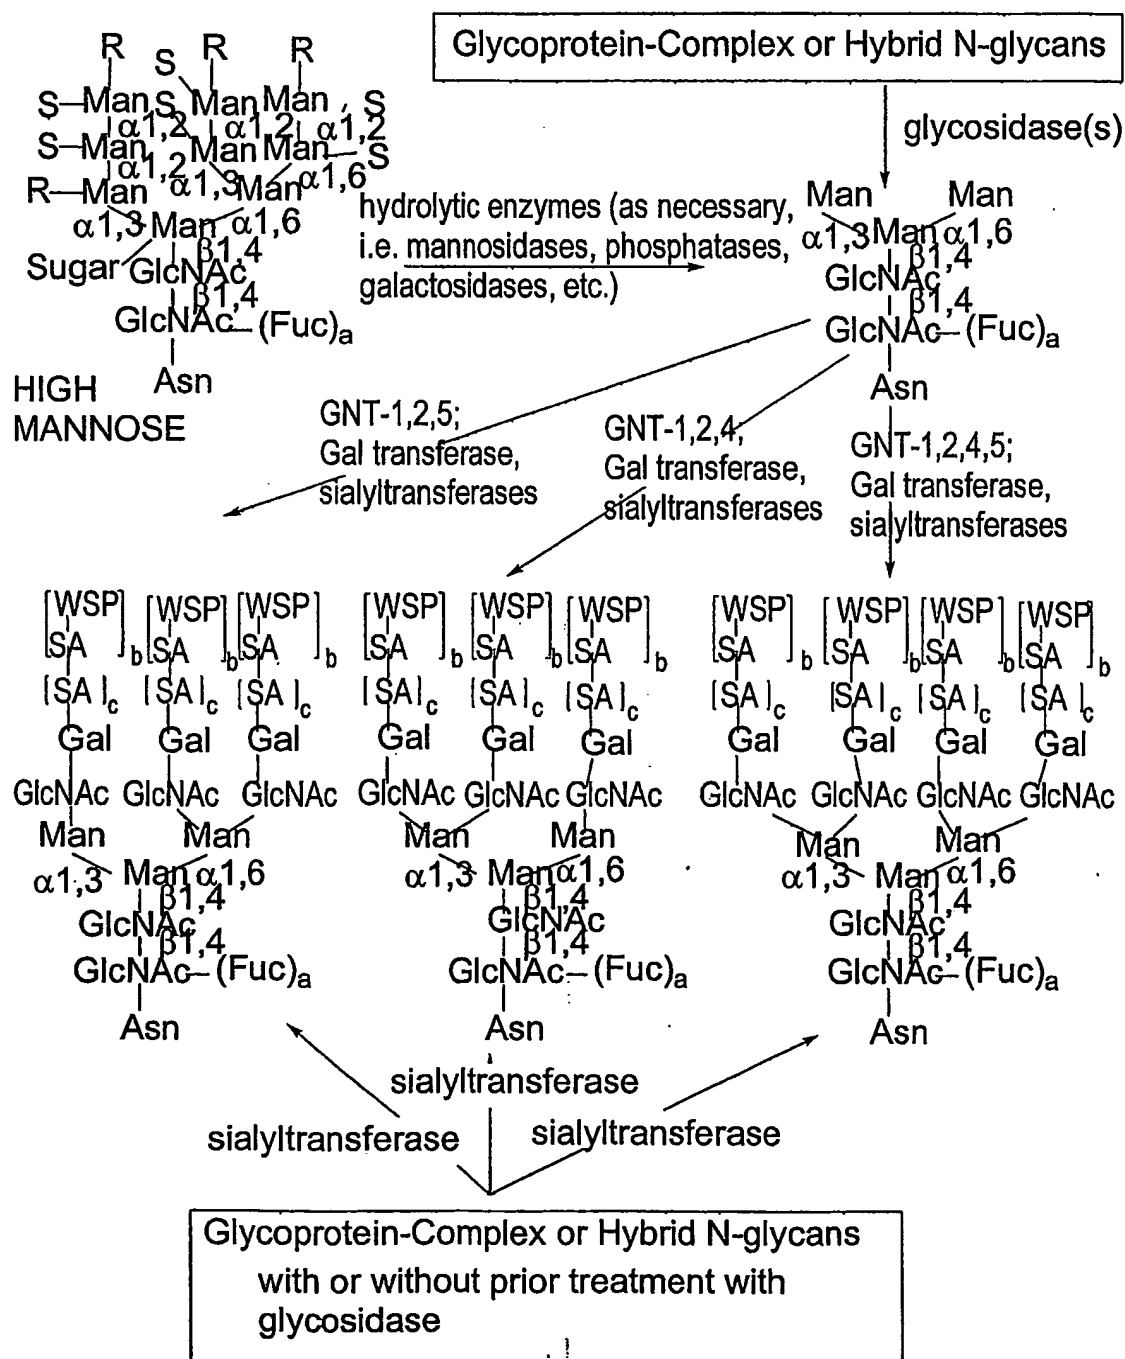 Glycoprotein-Complex or Hybrid N-glycans
glycosidase(s)
R R R
S
S–Man S Man Man S
α1,2 α1,2 α1,2
S–Man Man Man S
α1,2 α1,3 α1,6
R–Man Man
α1,3 Man α1,6
β1,4
Sugar GlcNAc
β1,4
GlcNAc–(Fuc)a
Asn
HIGH
MANNOSE
hydrolytic enzymes (as necessary,
i.e. mannosidases, phosphatases,
galactosidases, etc.)
Man Man
α1,3 Man α1,6
β1,4
GlcNAc
β1,4
GlcNAc–(Fuc)a
Asn
GNT-1,2,5;
Gal transferase,
sialyltransferases
GNT-1,2,4;
Gal transferase,
sialyltransferases
GNT-1,2,4,5;
Gal transferase,
sialyltransferases
[WSP [WSP [WSP
SA]b SA]b SA]b
[SA]c [SA]c [SA]c
Gal Gal Gal
GlcNAc GlcNAc GlcNAc
Man Man
α1,3 Man α1,6
β1,4
GlcNAc
β1,4
GlcNAc–(Fuc)a
Asn
[WSP [WSP [WSP
SA]b SA]b SA]b
[SA]c [SA]c [SA]c
Gal Gal Gal
GlcNAc GlcNAc GlcNAc
Man Man
α1,3 Man α1,6
β1,4
GlcNAc
β1,4
GlcNAc–(Fuc)a
Asn
[WSP [WSP [WSP [WSP
SA]b SA]b SA]b SA]b
[SA]c [SA]c [SA]c [SA]c
Gal Gal Gal Gal
GlcNAc GlcNAc GlcNAc GlcNAc
Man Man
α1,3 Man α1,6
β1,4
GlcNAc
β1,4
GlcNAc–(Fuc)a
Asn
sialyltransferase
sialyltransferase sialyltransferase
Glycoprotein-Complex or Hybrid N-glycans
with or without prior treatment with
glycosidase